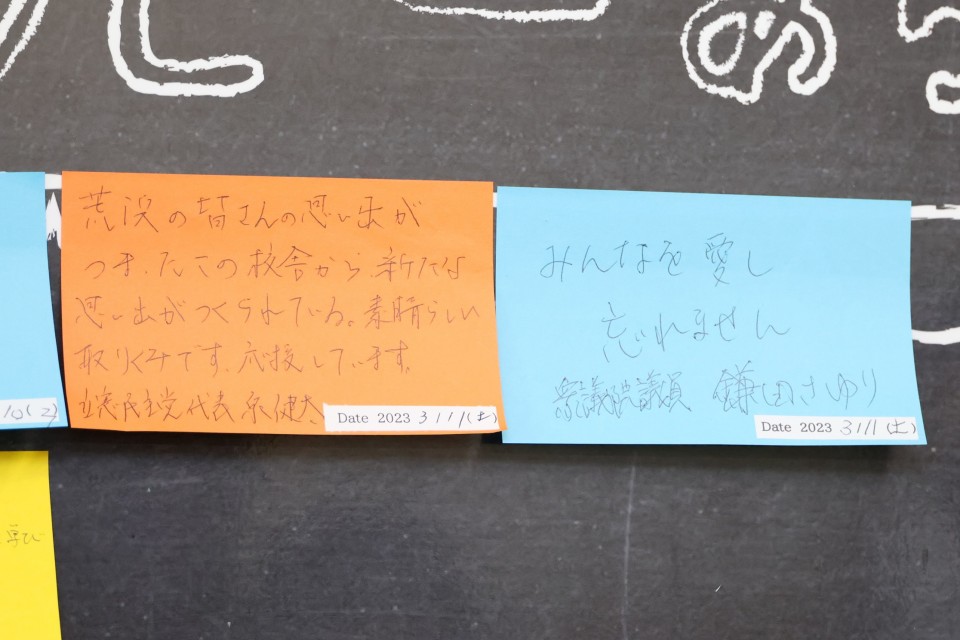 荒浜の皆さんの思い出が
つまったこの校舎から、新たな
思い出がつくられている。素晴らしい
取りくみです。応援しています。
立憲民主党代表 泉健太
Date 2023 3/11(土)
みんなを愛し
忘れません
衆議院議員 鎌田さゆり
Date 2023 3/11(土)
学び